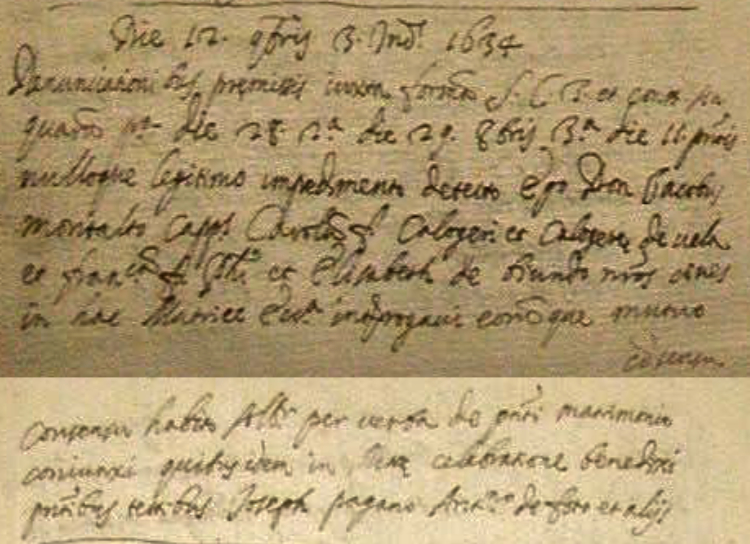 Die 12. 9bris 3. Ind. 1634
Denunciationibus premissis iuxta formam S. C. T. et
die 28 2.a die 29. 8bris 3.a die 11
nulloque legitimo impedimento detecto Ego Don Jacobus
montalto Capp.s f. Caloger et Calogere de
et fran.ca f. et Elisabeth de nros cives
in hac Matrice Eccl.a interrogavi eorumque mutuo
consensu
consensu habito per verba de pnti matrimonio
coniunxi quibusdem in celebratione benedixi
pntibus testibus Joseph pagano de et alijs